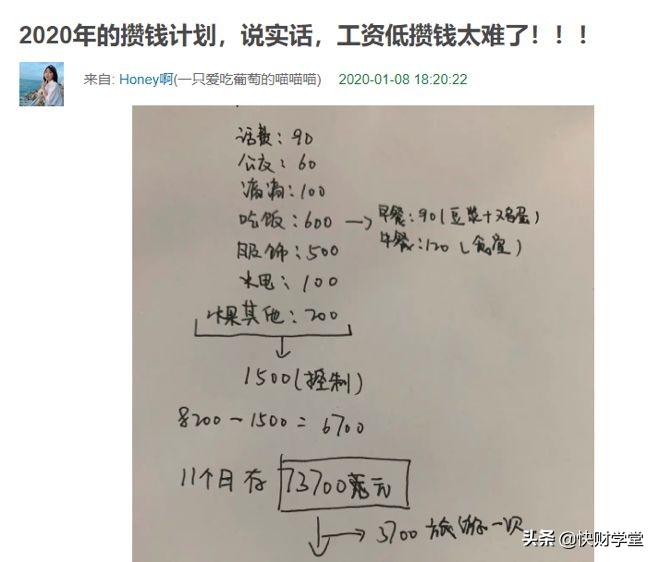 2020年的攒钱计划，说实话，工资低攒钱太难了！！！
来自: Honey啊(一只爱吃葡萄的喵喵喵) 2020-01-08 18:20:22
话费：90
公交：60
滴滴：100
吃饭：600 → 早餐：90（豆浆+鸡蛋）
午餐：120（食堂）
服饰：500
水电：100
水果其他：200
1500(控制)
8200-1500=6700
11个月存 73700元
3700 旅游一次
头条 @快财学堂